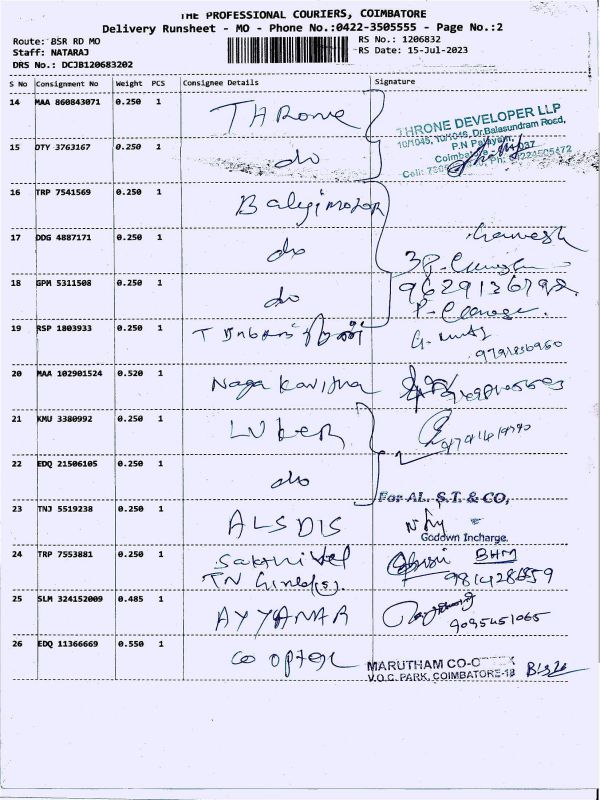 THE PROFESSIONAL COURIERS, COIMBATORE
Delivery Runsheet - MO - Phone No.:0422-3505555 - Page No.:2
Route: BSR RD MO
RS No.: 1206832
Staff: NATARAJ
RS Date: 15-Jul-2023
DRS No.: DCJB120683202
S No Consignment No Weight PCS Consignee Details Signature
14 MAA 860843071 0.250 1 Throne
THRONE DEVELOPER LLP
10/1045, 10/1046, Dr.Balasundram Road,
P.N Palayam,
15 DTY 3763167 0.250 1 do
16 TRP 7541569 0.250 1 Balaji motor
17 DDG 4887171 0.250 1 do
18 GPM 5311508 0.250 1 do
19 RSP 1803933 0.250 1
20 MAA 102901524 0.520 1 Naga Kavitha
21 KMU 3380992 0.250 1 LUKER
22 EDQ 21506105 0.250 1 do
For AL. S.T. & CO,
23 TNJ 5519238 0.250 1 ALSDIS
Godown Incharge.
24 TRP 7553881 0.250 1 Sakthivel
TN
BHM
25 SLM 324152009 0.485 1 AYYANAR
9095451065
26 EDQ 11366669 0.550 1 Co optex
MARUTHAM CO-O
V.O.C. PARK, COIMBATORE-18